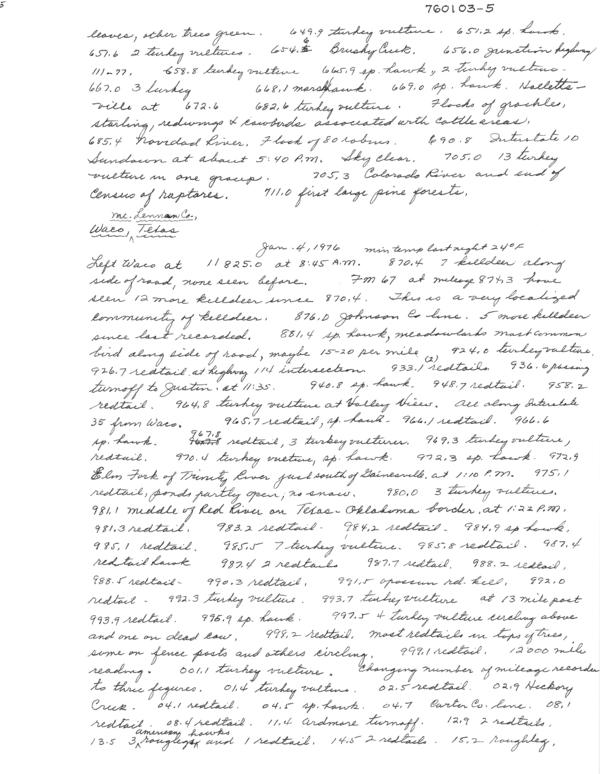 760103-5
leaves, other trees green. 649.9 turkey vulture. 651.2 sp. hawk.
657.6 2 turkey vultures. 654.6 Brushy Creek. 656.0 Junction highway
111-77. 658.8 turkey vulture 665.9 sp. hawk, 2 turkey vultures.
667.0 3 turkey 668.1 marsh hawk. 669.0 sp. hawk. Halletts-
ville at 672.6 682.6 turkey vulture. Flocks of grackles,
starling, redwings & cowbirds associated with cattle areas.
685.4 Navidad River. Flock of 80 robins. 690.8 Interstate 10
Sundown at about 5:40 P.M. Sky clear. 705.0 13 turkey
vulture in one group. 705.3 Colorado River and end of
Census of raptores. 711.0 first large pine forests.
Mc. Lennan Co.,
Waco, Texas
Jan. 4, 1976 min temp last night 24°F
Left Waco at 11825.0 at 8:45 A.M. 870.4 7 killdeer along
side of road, none seen before. FM 67 at mileage 874.3 have
seen 12 more killdeer since 870.4. This is a very localized
community of killdeer. 876.0 Johnson Co line. 5 more killdeer
since last recorded. 881.4 sp. hawk, meadowlarks most common
bird along side of road, maybe 15-20 per mile 924.0 turkey vulture.
926.7 redtail at highway 114 intersection 933.1 (2) redtails 936.6 passing
turnoff to Justin. at 11:35. 940.8 sp. hawk. 948.7 redtail. 958.2
redtail. 964.8 turkey vulture at Valley View. All along Interstate
35 from Waco. 965.7 redtail, sp. hawk. 966.1 redtail. 966.6
sp. hawk. 967.8 redtail, 3 turkey vultures. 969.3 turkey vulture,
redtail. 970.4 turkey vulture, sp. hawk. 972.3 sp. hawk. 972.9
Elm Fork of Trinity River just south of Gainesville. at 1:10 P.M. 975.1
redtail, ponds partly open, no snow. 980.0 3 turkey vultures.
981.1 middle of Red River on Texas-Oklahoma border, at 1:22 P.M.
981.3 redtail. 983.2 redtail. 984.2 redtail. 984.9 sp hawk.
985.1 redtail. 985.5 7 turkey vulture. 985.8 redtail. 987.4
redtail hawk 987.4 2 redtails 987.7 redtail. 988.2 redtail.
988.5 redtail. 990.3 redtail. 991.5 opossum rd. kill. 992.0
redtail. 992.3 turkey vulture. 993.7 turkey vulture at 13 mile post
993.9 redtail. 995.9 sp. hawk. 997.5 4 turkey vulture circling above
and one on dead cow. 998.2 redtail. most redtails in tops of trees,
some on fence posts and others circling. 999.1 redtail. 12000 mile
reading. 001.1 turkey vulture. Changing number of mileage recorder
to three figures. 01.4 turkey vulture. 02.5 redtail. 02.9 Hickory
Creek. 04.1 redtail. 04.5 sp. hawk. 04.7 Carter Co. line. 08.1
redtail. 08.4 redtail. 11.4 Ardmore turnoff. 12.9 2 redtails.
13.5 3 american roughleg hawks and 1 redtail. 14.5 2 redtails. 15.2 roughleg,